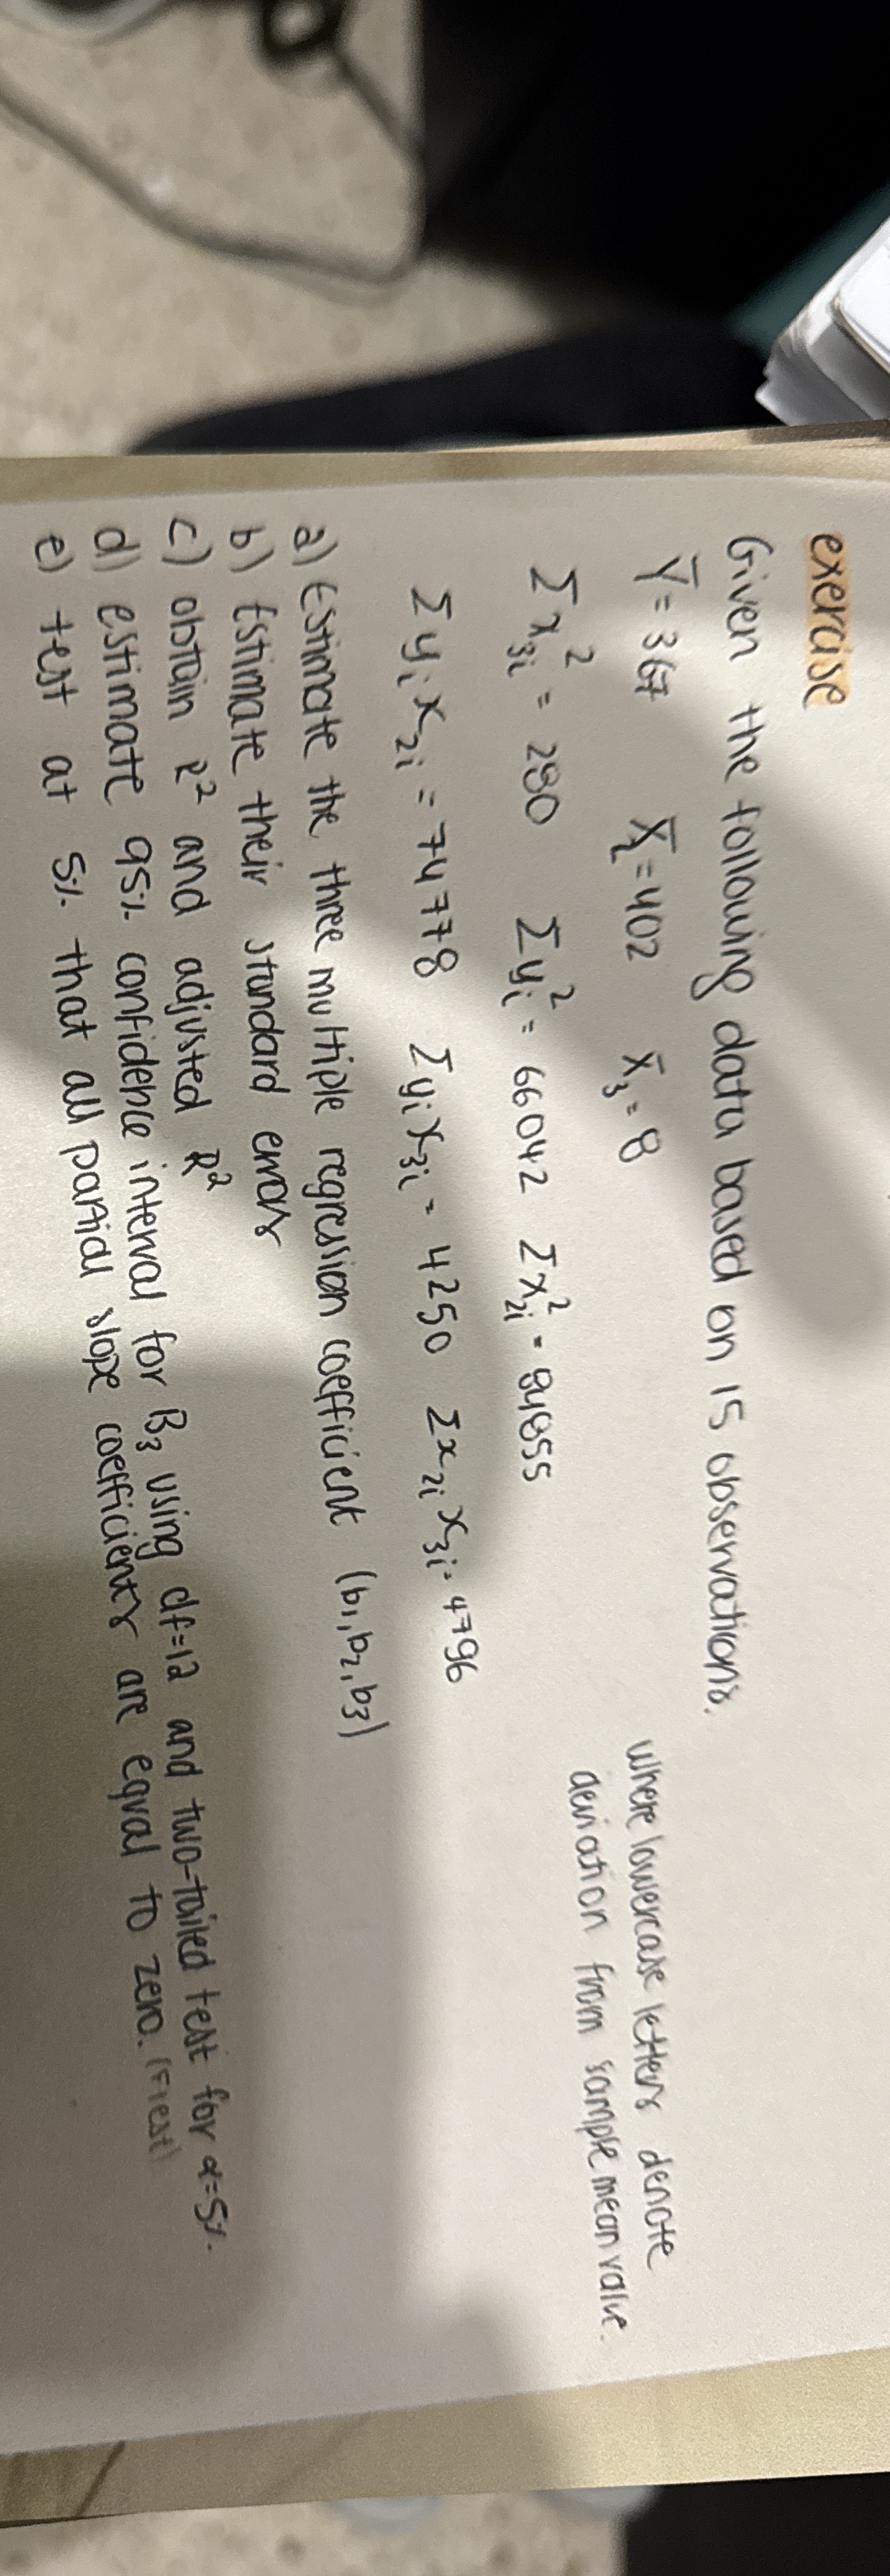 exercise
Given the following data based on 15 observations.
Ȳ = 367 X̄₂ = 402 X̄₃ = 8
where lowercase letters denote
deviation from sample mean value.
Σx₃ᵢ² = 280 Σyᵢ² = 66042 Σx₂ᵢ² = 84855
Σyᵢx₂ᵢ = 74778 Σyᵢx₃ᵢ = 4250 Σx₂ᵢx₃ᵢ = 4796
a) Estimate the three multiple regression coefficient (b₁, b₂, b₃)
b) Estimate their standard errors
c) obtain R² and adjusted R²
d) estimate 95% confidence interval for B₃ using df=12 and two-tailed test for α=5%.
e) test at 5% that all partial slope coefficients are equal to zero. (Ftest)